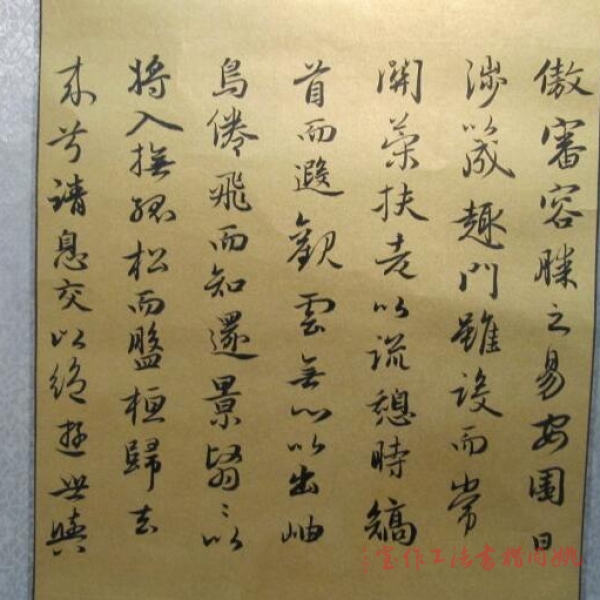 傲審容膝之易安園日
涉以成趣門雖設而常
關策扶老以流憩時矯
首而遐觀雲無心以出岫
鳥倦飛而知還景翳〻以
將入撫孤松而盤桓歸去
來兮請息交以絕遊世與